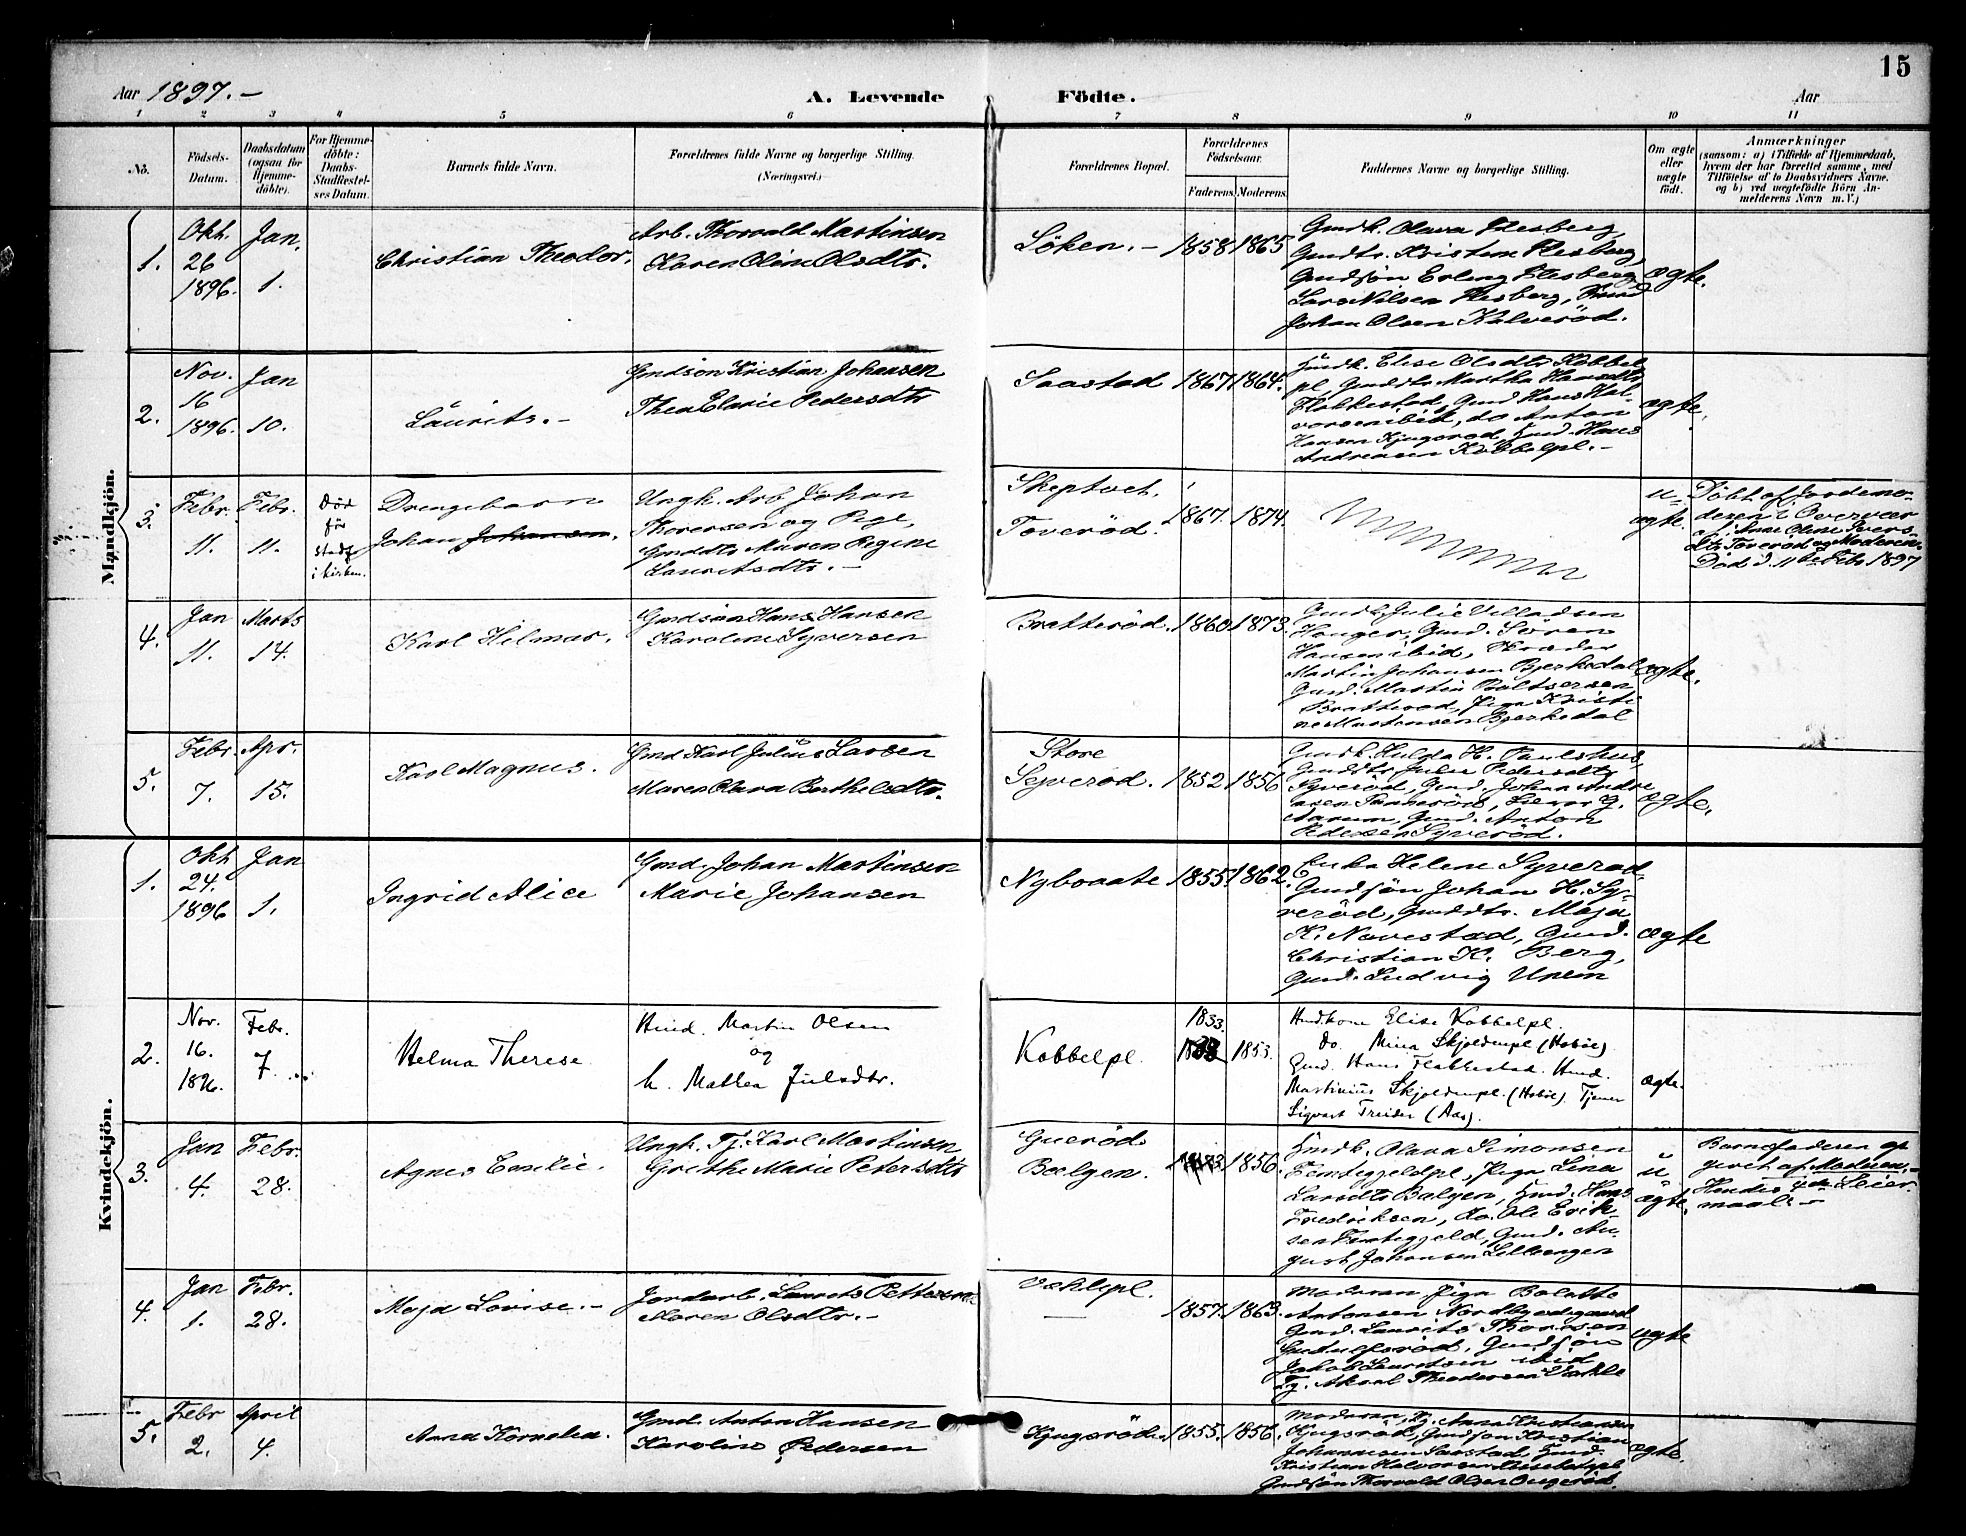 15
Aar 1897.-
A. Levende Födte.
Aar
1 2 3 4 5 6 7 8 9 10 11
No.
Födsels-
Datum.
Daabsdatum
(ogsaa for
Hjemme-
döbte).
For Hjemme-
döbte:
Daabs-
Stadfæstel-
ses Datum.
Barnets fulde Navn.
Forældrenes fulde Navne og borgerlige Stilling.
(Næringsvei.)
Forældrenes Bopæl.
Forældrenes
Födselsaar.
Faderens. Moderens.
Faddernes Navne og borgerlige Stilling.
Om ægte
eller
uægte
födt.
Anmærkninger
(saasom: a) i Tilfælde af Hjemmedaab,
hvem der har forrettet samme, med
Tilföielse af to Daabsvidners Navne,
og b) ved uægtefödte Börn An-
melderens Navn m. V.)
Mandkjön.
1.
Okt.
26
1896.
Jan.
1.
Christian Theodor.
Arb. Thorvald Martinsen
Karen Oline Olsdtr.
Söken.-
1858 1865
Gmdk. Olava Flesberg,
Gmddtr. Kristine Flesberg,
Gmdsön Erling Flesberg,
Lars Nilsen Flesberg,
Johan Olsen Kolveröd.
ægte.
2.
Nov.
16
1896.
Jan
10.
Laurits.-
Gmdsön Kristian Johansen
Thea Elavie Pedersdtr
Saastad
1867 1864.
Hmdk. Elise Olsdtr Kobbel
pl, Gmddtr Martha Hansdtr
Flakkestad, Gmd Hans Hal-
vorsen ibid, do Anton
Hansen Kjugsröd, Hmd. Hans
Andreasen Kobbelpl.-
ægte.
3.
Febr.
11.
Febr.
11.
Död
för
stadf.
i kirken.
Drengebarn
Johan Johansen.
Ungk. Arb Johan
Thoresen og Pige,
Gmddtr Maren Regine
Lauritsdtr.-
Skeptvet.
Toveröd.
1867. 1874.
u-
ægte.
Döbt af Jordemo-
deren i Overvær
af Anne Oline Ivers-
dtr Toveröd og Moderen.
Död d. 11te Febr 1897
4.
Jan
11.
Marts
14.
Karl Hilmar.
Gmdsön Hans Hansen
Karoline Syversen
Bratteröd.
1860 1873.
Gmdk. Julie Villadsen
Hauger, Gmd. Sören
Hansen ibid, Skræder
Martin Johansen Bjerkedal
Gmd. Martin Baltsersen
Bratteröd, Pige Kristi
ne Martensen Bjerkedal
ægte.
5.
Febr.
7.
Apr.
15.
Karl Magnus.
Gmd Karl Julius Larsen
Maren Olava Berthelsdtr.
Store
Syveröd.
1852 1856
Gmdk. Hulda H. Paulshus,
Gmddtr Julie Pedersdtr
Syveröd, Gmd. Johan Andre
asen Tanneröd, G.
Aarum, Gmd. Anton
Pedersen Syveröd.
ægte.
Kvindekjön.
1.
Okt
24.
1896
Jan
1.
Ingrid Alice
Gmd. Johan Martinsen
Marie Johansen
Nyboaate
1855 1862.
Enke Helene Syveröd
Gmdsön Johan H. Sy-
veröd, Gmddtr. Maja
K. Navestad, Gmd.
Christian K. Berg,
Gmd. Ludvig Unem
ægte
2.
Nov.
16.
1896.
Febr.
7.
Helma Therese
Hmd. Martin Olsen
og
h. Mathea Julsdtr.
Kobbelpl.
1833.
1853.
Hmd.kone Elise Kobbelpl.
Do. Mina Skjoldenpl (Hobøl)
Gmd. Hans Flakkestad. Hmd.
Martinius Skjoldenpl. (Hobøl). Tjener
Sigvart Treider (Aas).
ægte.
3.
Jan
4.
Febr.
28.
Agnes Emilie.
Ungk. Tj. Karl Martinsen
Grethe Marie Petersdtr
Gueröd
Bælgen.
1856.
Hmdk. Olava Simonsen
Femtegjeldpl, Pige Lina
Larsdtr Balgen, Hmd. Hans
Fredriksen, Do. Ole Erik
sen Femtegjeld, Gmd. Au-
gust Johansen Lillevangen
u
ægte.
Barnefaderen op
givet af Moderen.-
Hendes 4de Leier-
maal.-
4.
Jan
1.
Febr.
28.
Maja Lovise.-
Jordarb. Laurits Pettersen
Karen Olsdtr.-
Vahlepl.
1857. 1863.
Moderen, Pige Bolette
Antonsen Nordbyödegaard
Gmd. Laurits Thoresen
Gudulfsröd, Gmdsön
Jakob Lauritsen ibid
Tj. Aksel Theodorsen Vahle
ægte
5.
Febr
2.
April
4.
Anna Kornelia.
Gmd. Anton Hansen
Karoline Pedersen
Kjugsröd.
1855. 1856.
Moderen, Tj. Anna Kristiansen
Kjugsröd, Gmdsön Kristian
Johannesen Saastad, Hmd.
Kristian Halvorsen
Gmdsön Thorvald Olsen Ongeröd.
ægte.